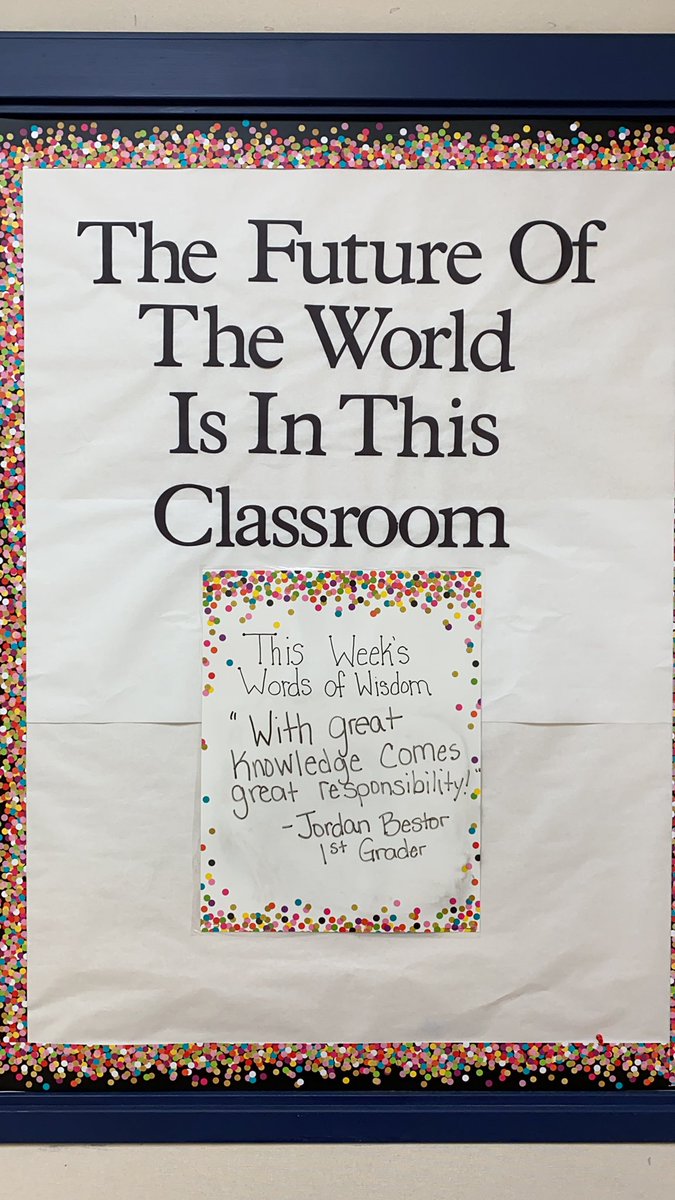 The Future Of
The World
Is In This
Classroom
This Week's
Words of Wisdom
"With great
Knowledge Comes
great responsibility!"
-Jordan Bestor
1st Grader